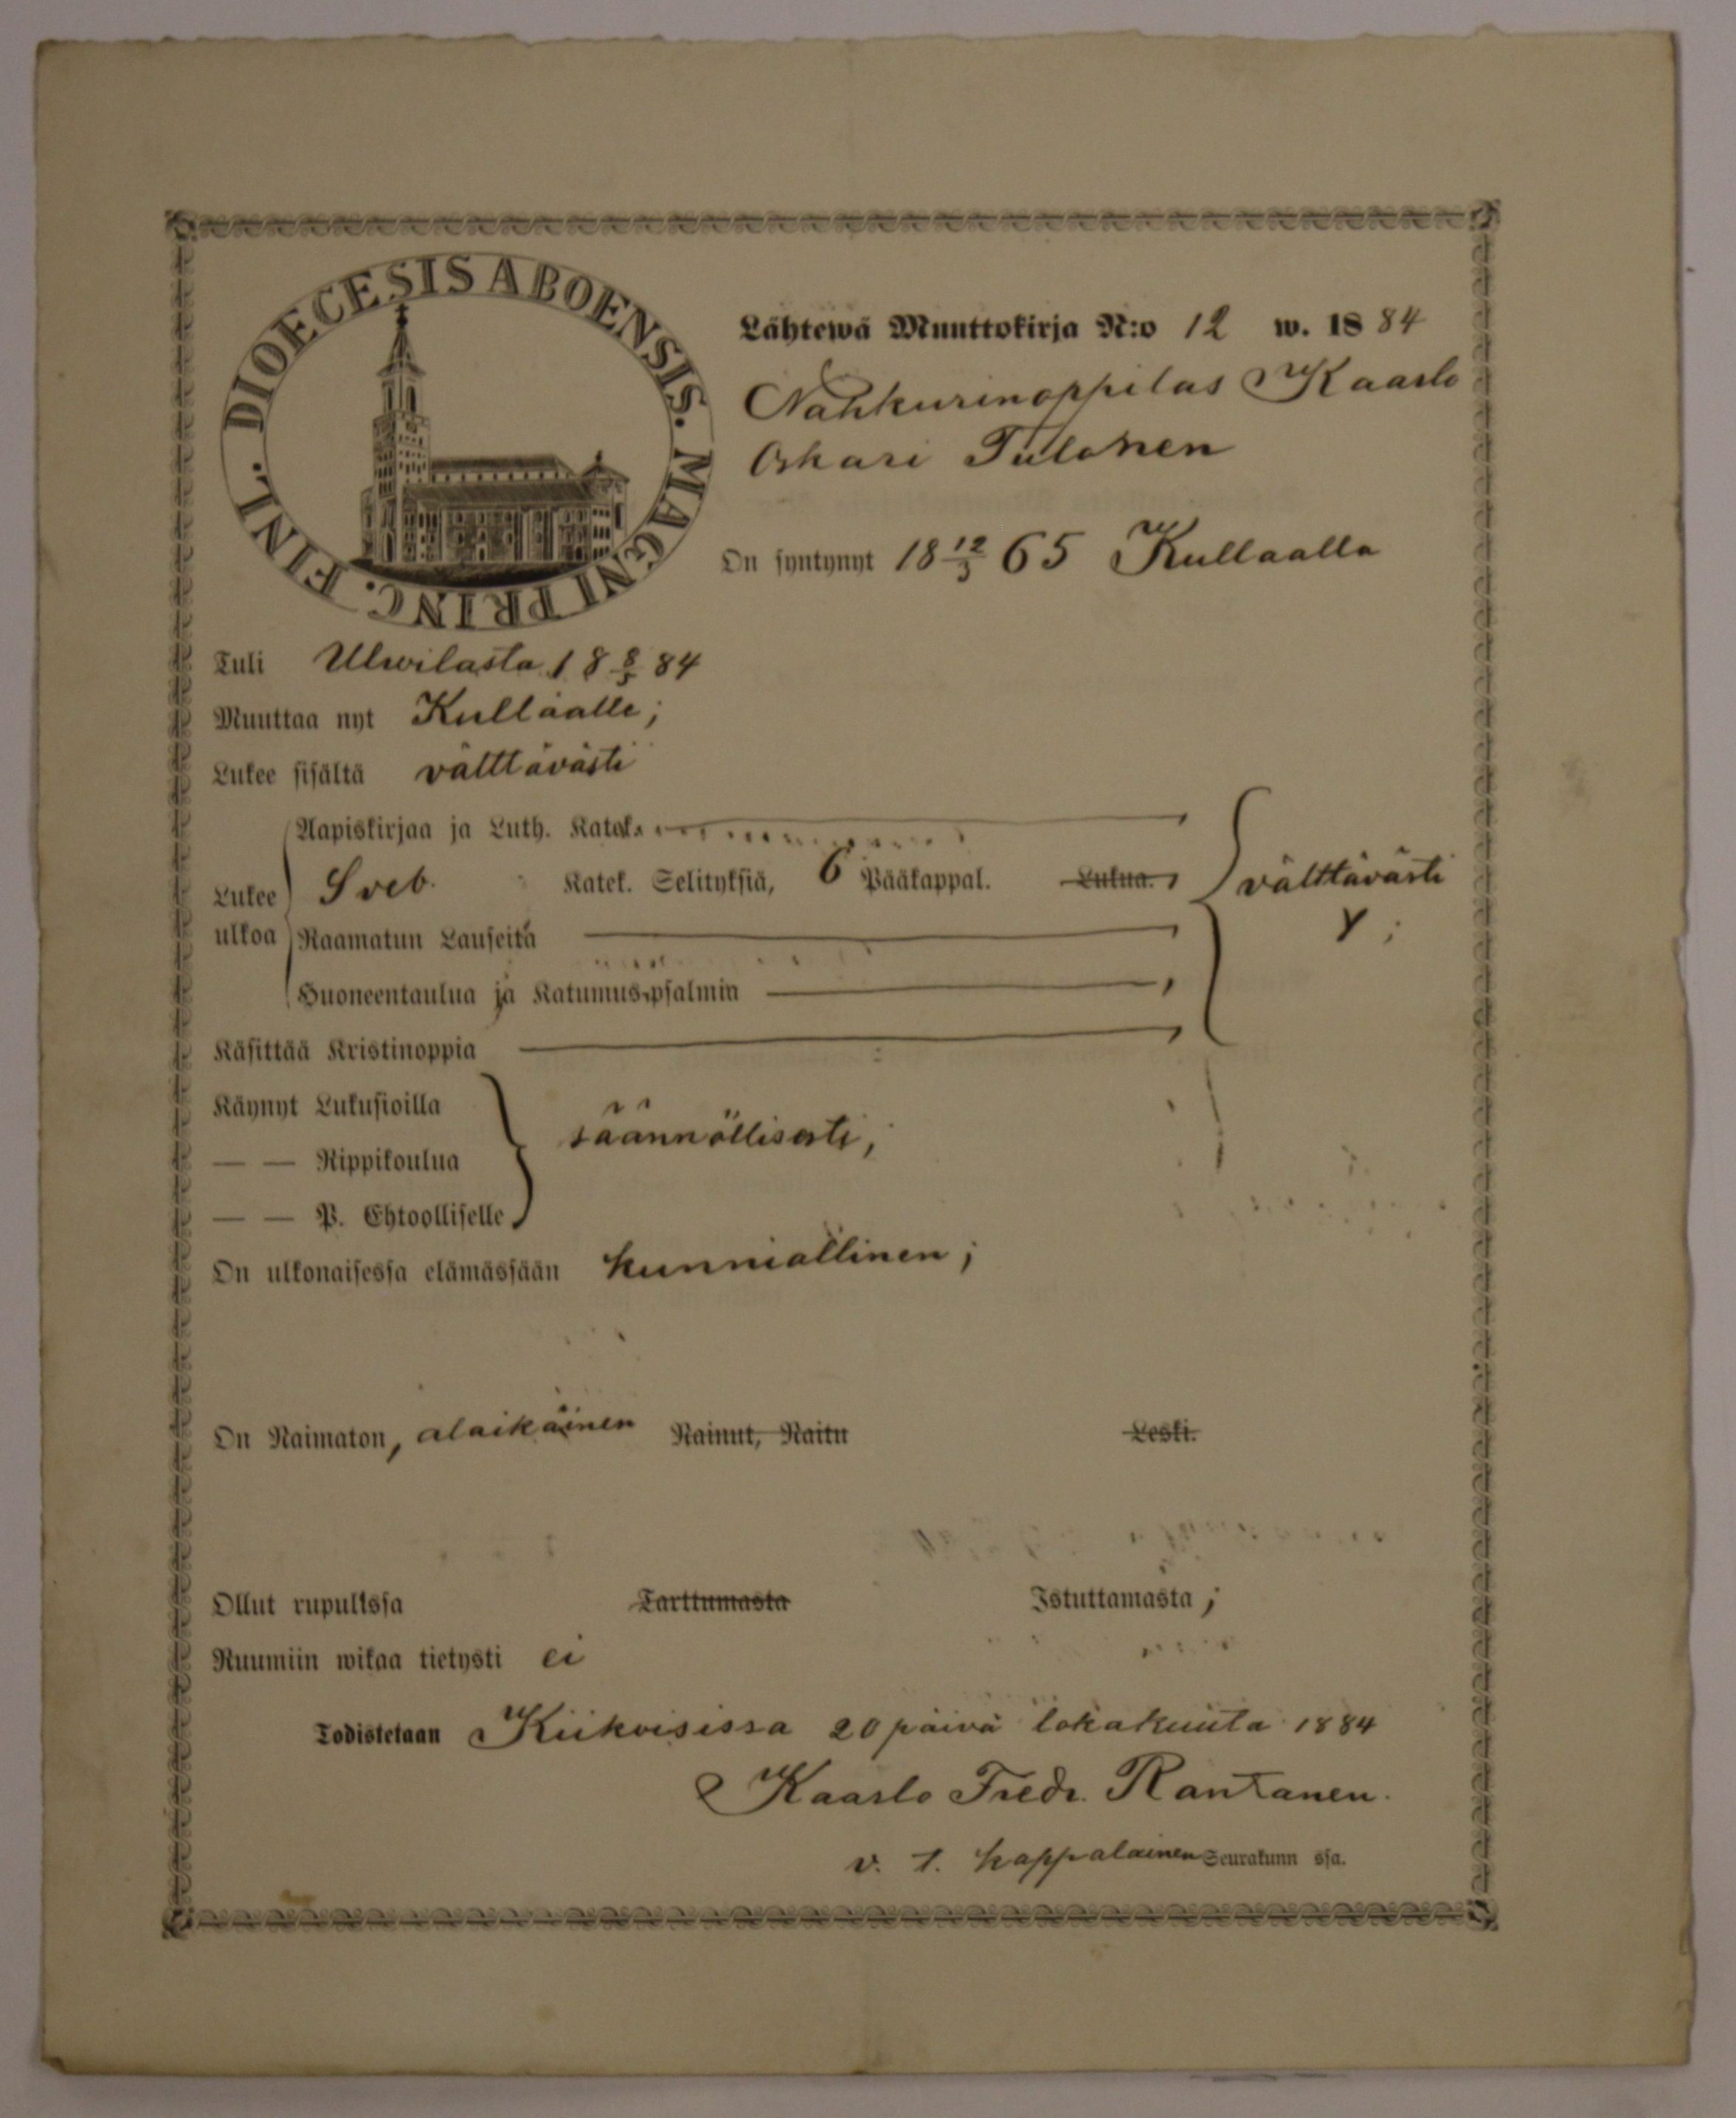 DIOECESIS ABOENSIS. MAGNI PRINC. FINL.
Lähtewä Muuttokirja N:o 12 w. 1884
Nahkurinoppilas Kaarlo
Oskari Tulonen
On syntynyt 18 12/3 65 Kullaalla
Tuli Ulwilasta 18 8/5 84
Muuttaa nyt Kullaalle;
Lukee sisältä välttävästi
Aapiskirjaa ja Luth. Katek.
Lukee ulkoa Sveb. Katek. Selityksiä, 6 Pääkappal. Lukua. välttävästi
Y;
Raamatun Lauseita
Huoneentaulua ja Katumus-psalmin
Käsittää Kristinoppia
Käynyt Lukusioilla
— — Rippikoulua säännöllisesti,
— — P. Ehtoolliselle
On ulkonaisessa elämässään kunniallinen;
On Naimaton, alaikäinen Nainut, Naitu Leski.
Ollut rupulissa Tarttumasta Istuttamasta;
Ruumiin wikaa tietysti ei
Todistetaan Kiikoisissa 20 päivä lokakuuta 1884
Kaarlo Fredr. Rantanen.
v. t. kappalainen Seurakunn ssa.